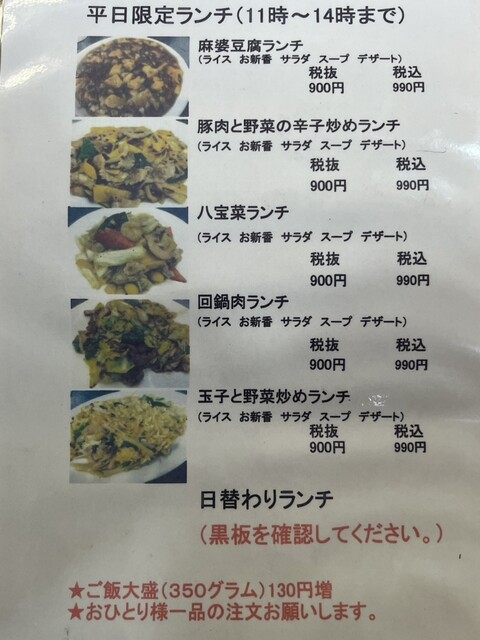 平日限定ランチ(11時～14時まで)
麻婆豆腐ランチ
(ライス お新香 サラダ スープ デザート)
税抜 税込
900円 990円
豚肉と野菜の辛子炒めランチ
(ライス お新香 サラダ スープ デザート)
税抜 税込
900円 990円
八宝菜ランチ
(ライス お新香 サラダ スープ デザート)
税抜 税込
900円 990円
回鍋肉ランチ
(ライス お新香 サラダ スープ デザート)
税抜 税込
900円 990円
玉子と野菜炒めランチ
(ライス お新香 サラダ スープ デザート)
税抜 税込
900円 990円
日替わりランチ
(黒板を確認してください。)
★ご飯大盛(350グラム)130円増
★おひとり様一品の注文お願いします。